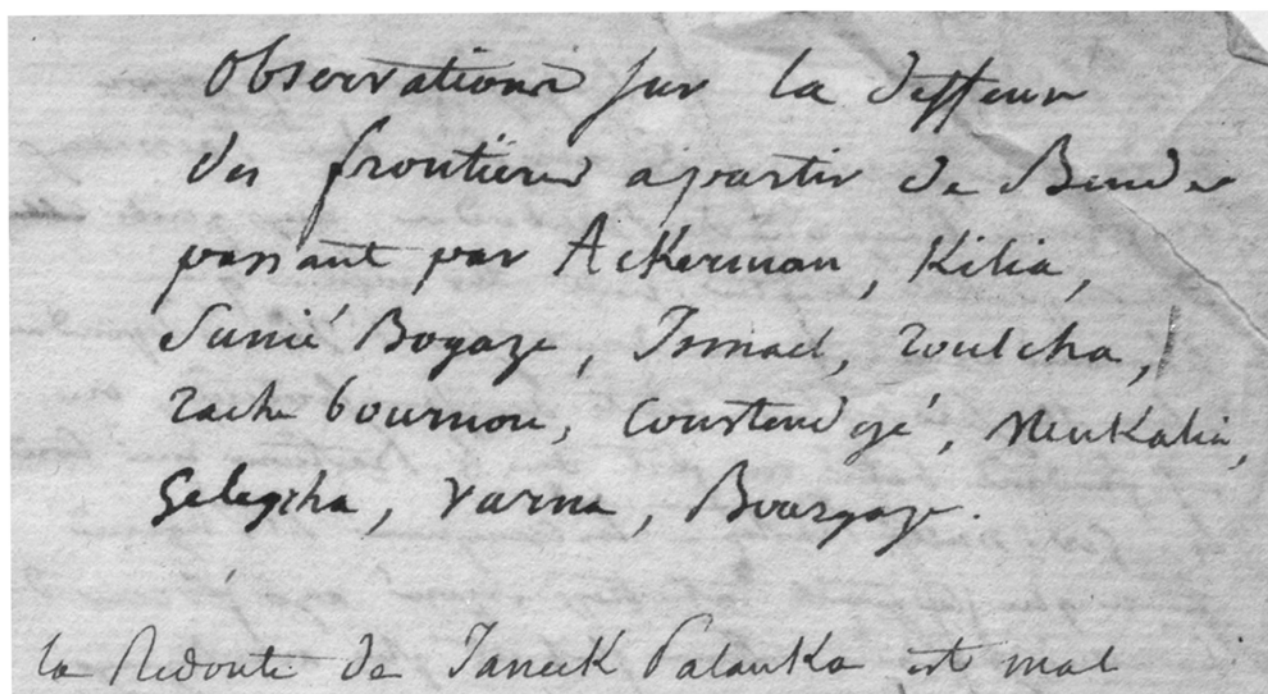 Observations sur la deffense
des frontières apartir de Bender
passant par Ackerman, Kilia,
Sunié Bogaze, Ismael, Toultcha,
Tache bournou, Coustendgé, Menkalia,
Gelegrha, Varna, Bourgaze.
la Redoute de Yaneek Palanka est mal